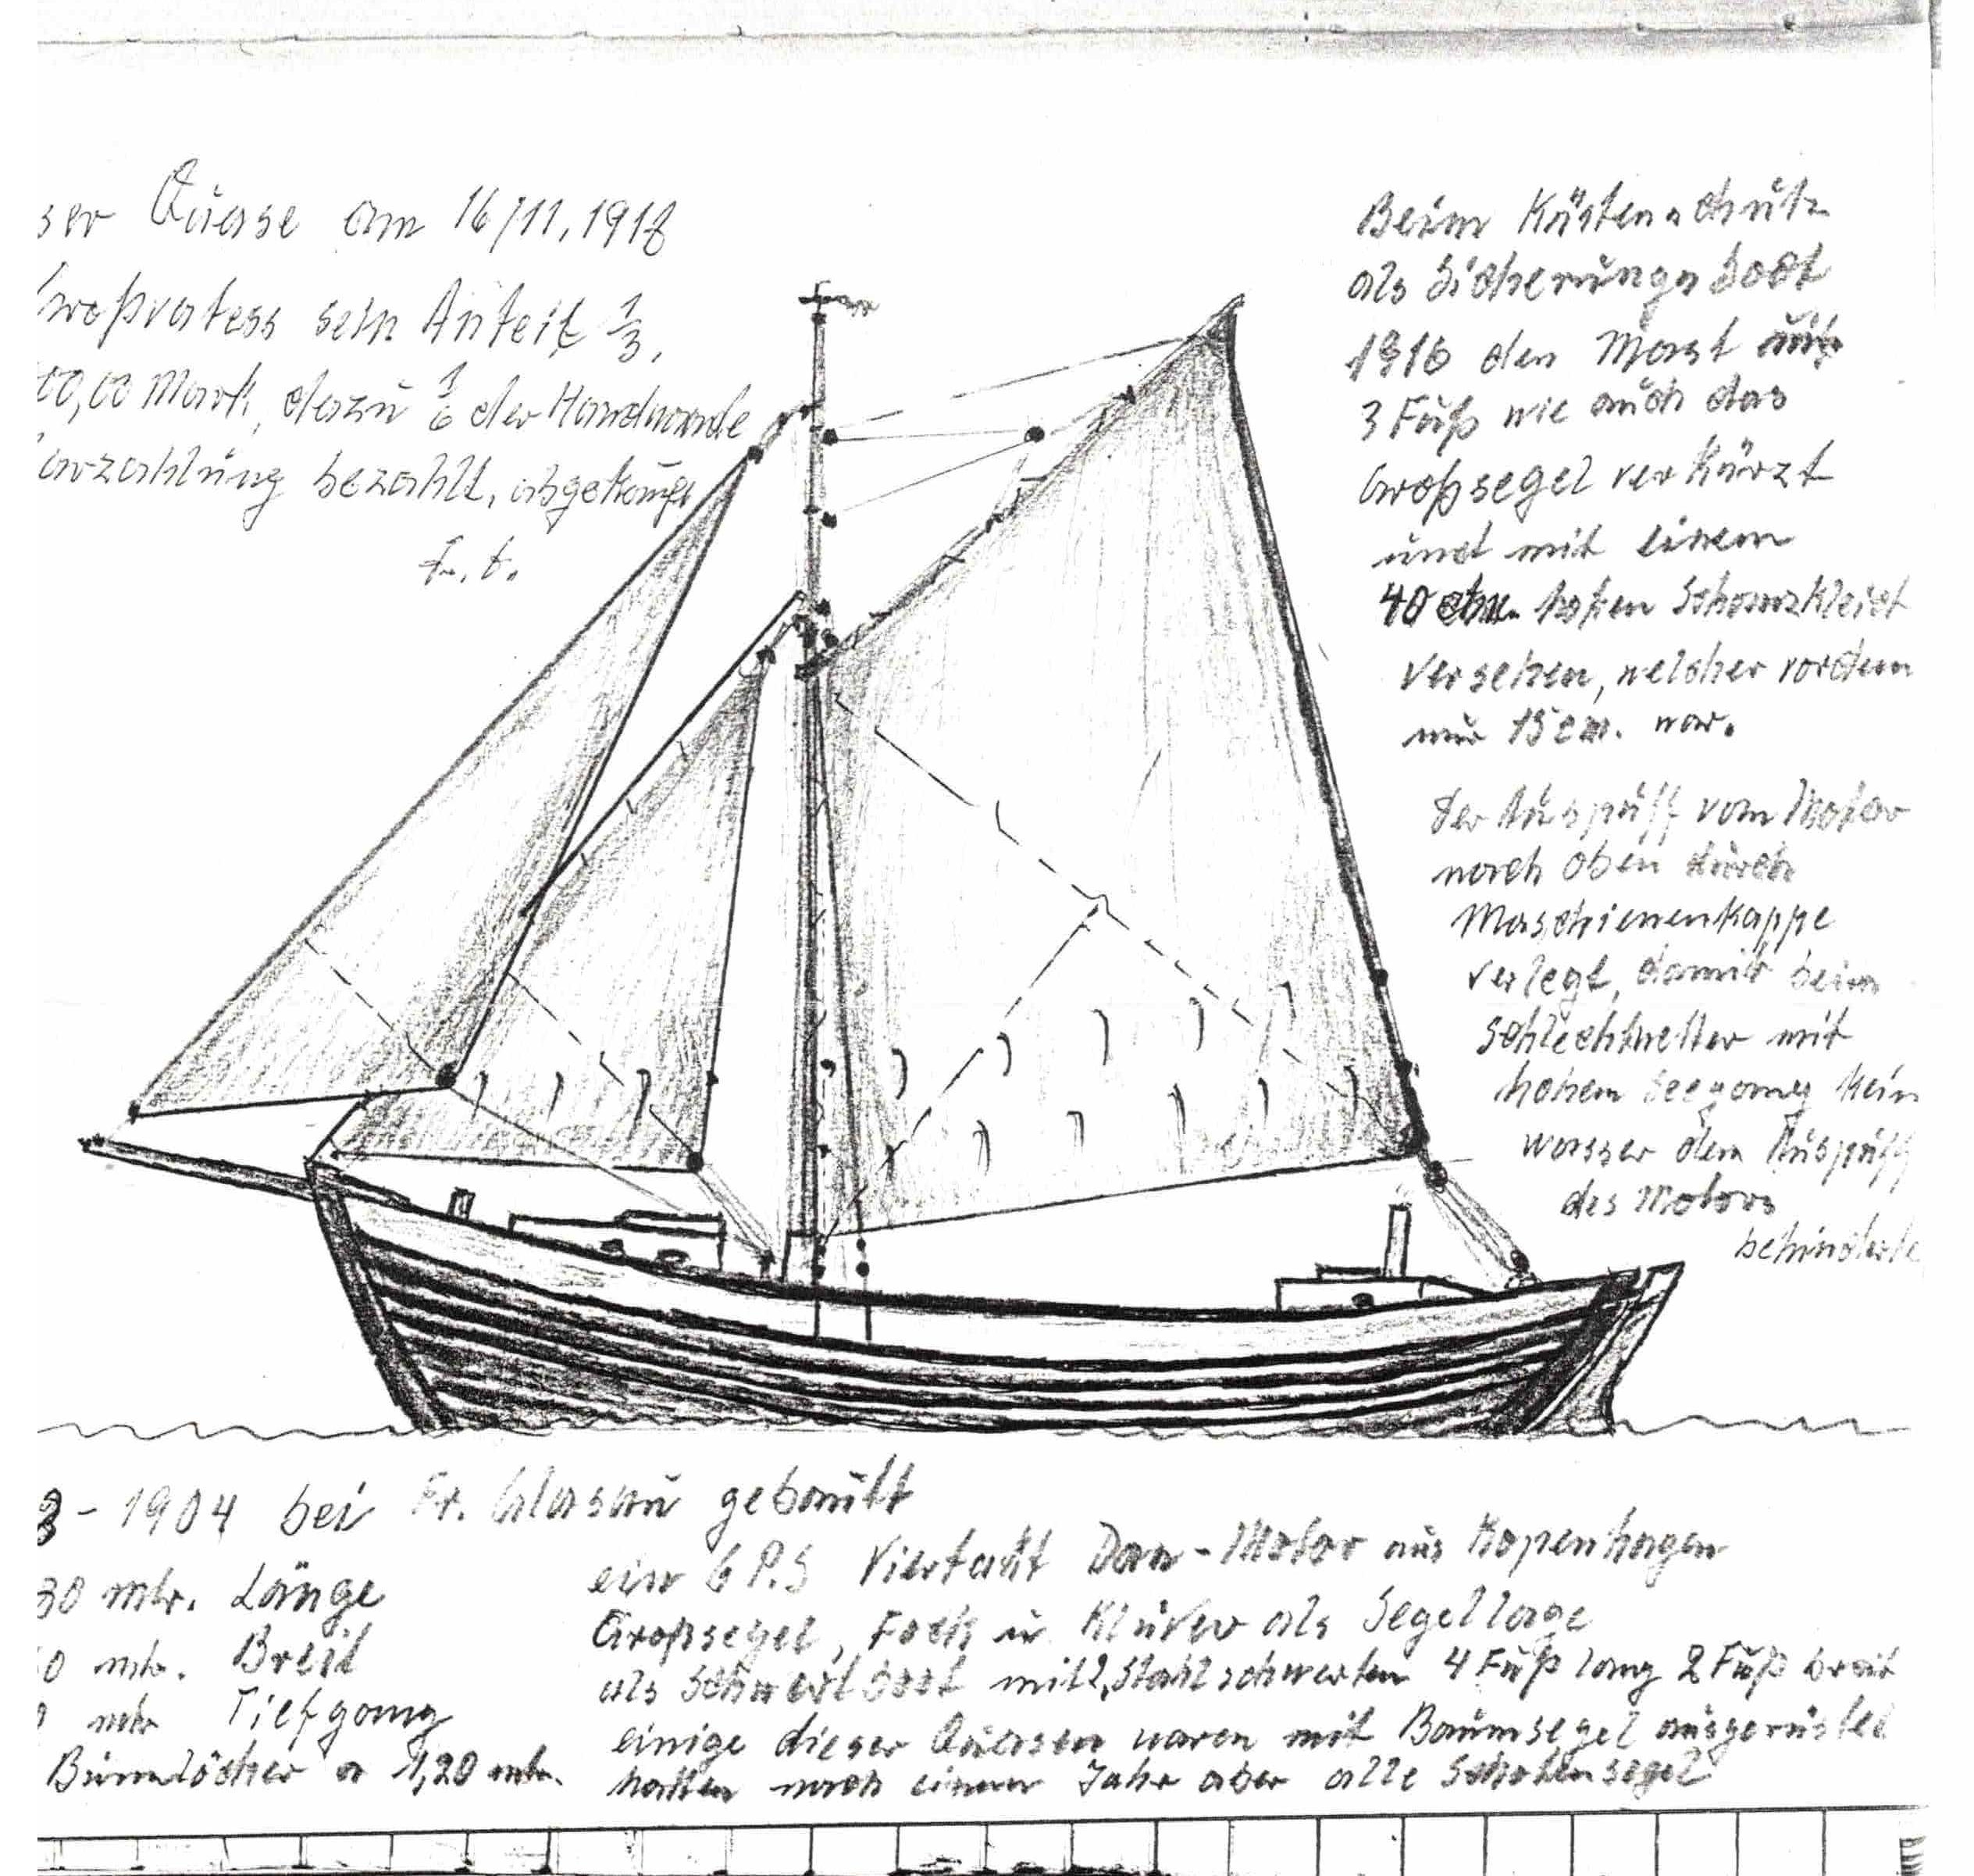 ser Quase am 16/11, 1918
Großvaters sein Anteil 1/3,
00,00 Mark, dazu 1/6 der
anzahlung bezahlt, abgekauft
Beim Küstenschutz
als Sicherungsboot
1916 den Mast um
3 Fuß wie auch das
Großsegel verkürzt
und mit einem
40 ctm. hohen Schanzkleid
versehen, welcher vordem
nur 15 cm. war.
Der Auspuff vom Motor
nach oben durch
Maschienenkappe
verlegt, damit beim
Schlechtwetter mit
hohem Seegang kein
wasser dem Auspuff
des Motors
behinderte
- 1904 bei Fr. Glasau gebaut
30 mtr. Länge
0 mtr. Breit
mtr Tiefgang
Bünnlöcher a 1,20 mtr.
ein 6 P.S Viertackt Dan-Motor aus Kopenhagen
Großsegel, Fock u. Klüver als Segellage
als Schwertboot mit 2 Stahlschwerten 4 Fuß lang 2 Fuß breit
einige dieser Quasen waren mit Baumsegel ausgerüstet
hatten nach einem Jahr aber alle Schotensegel